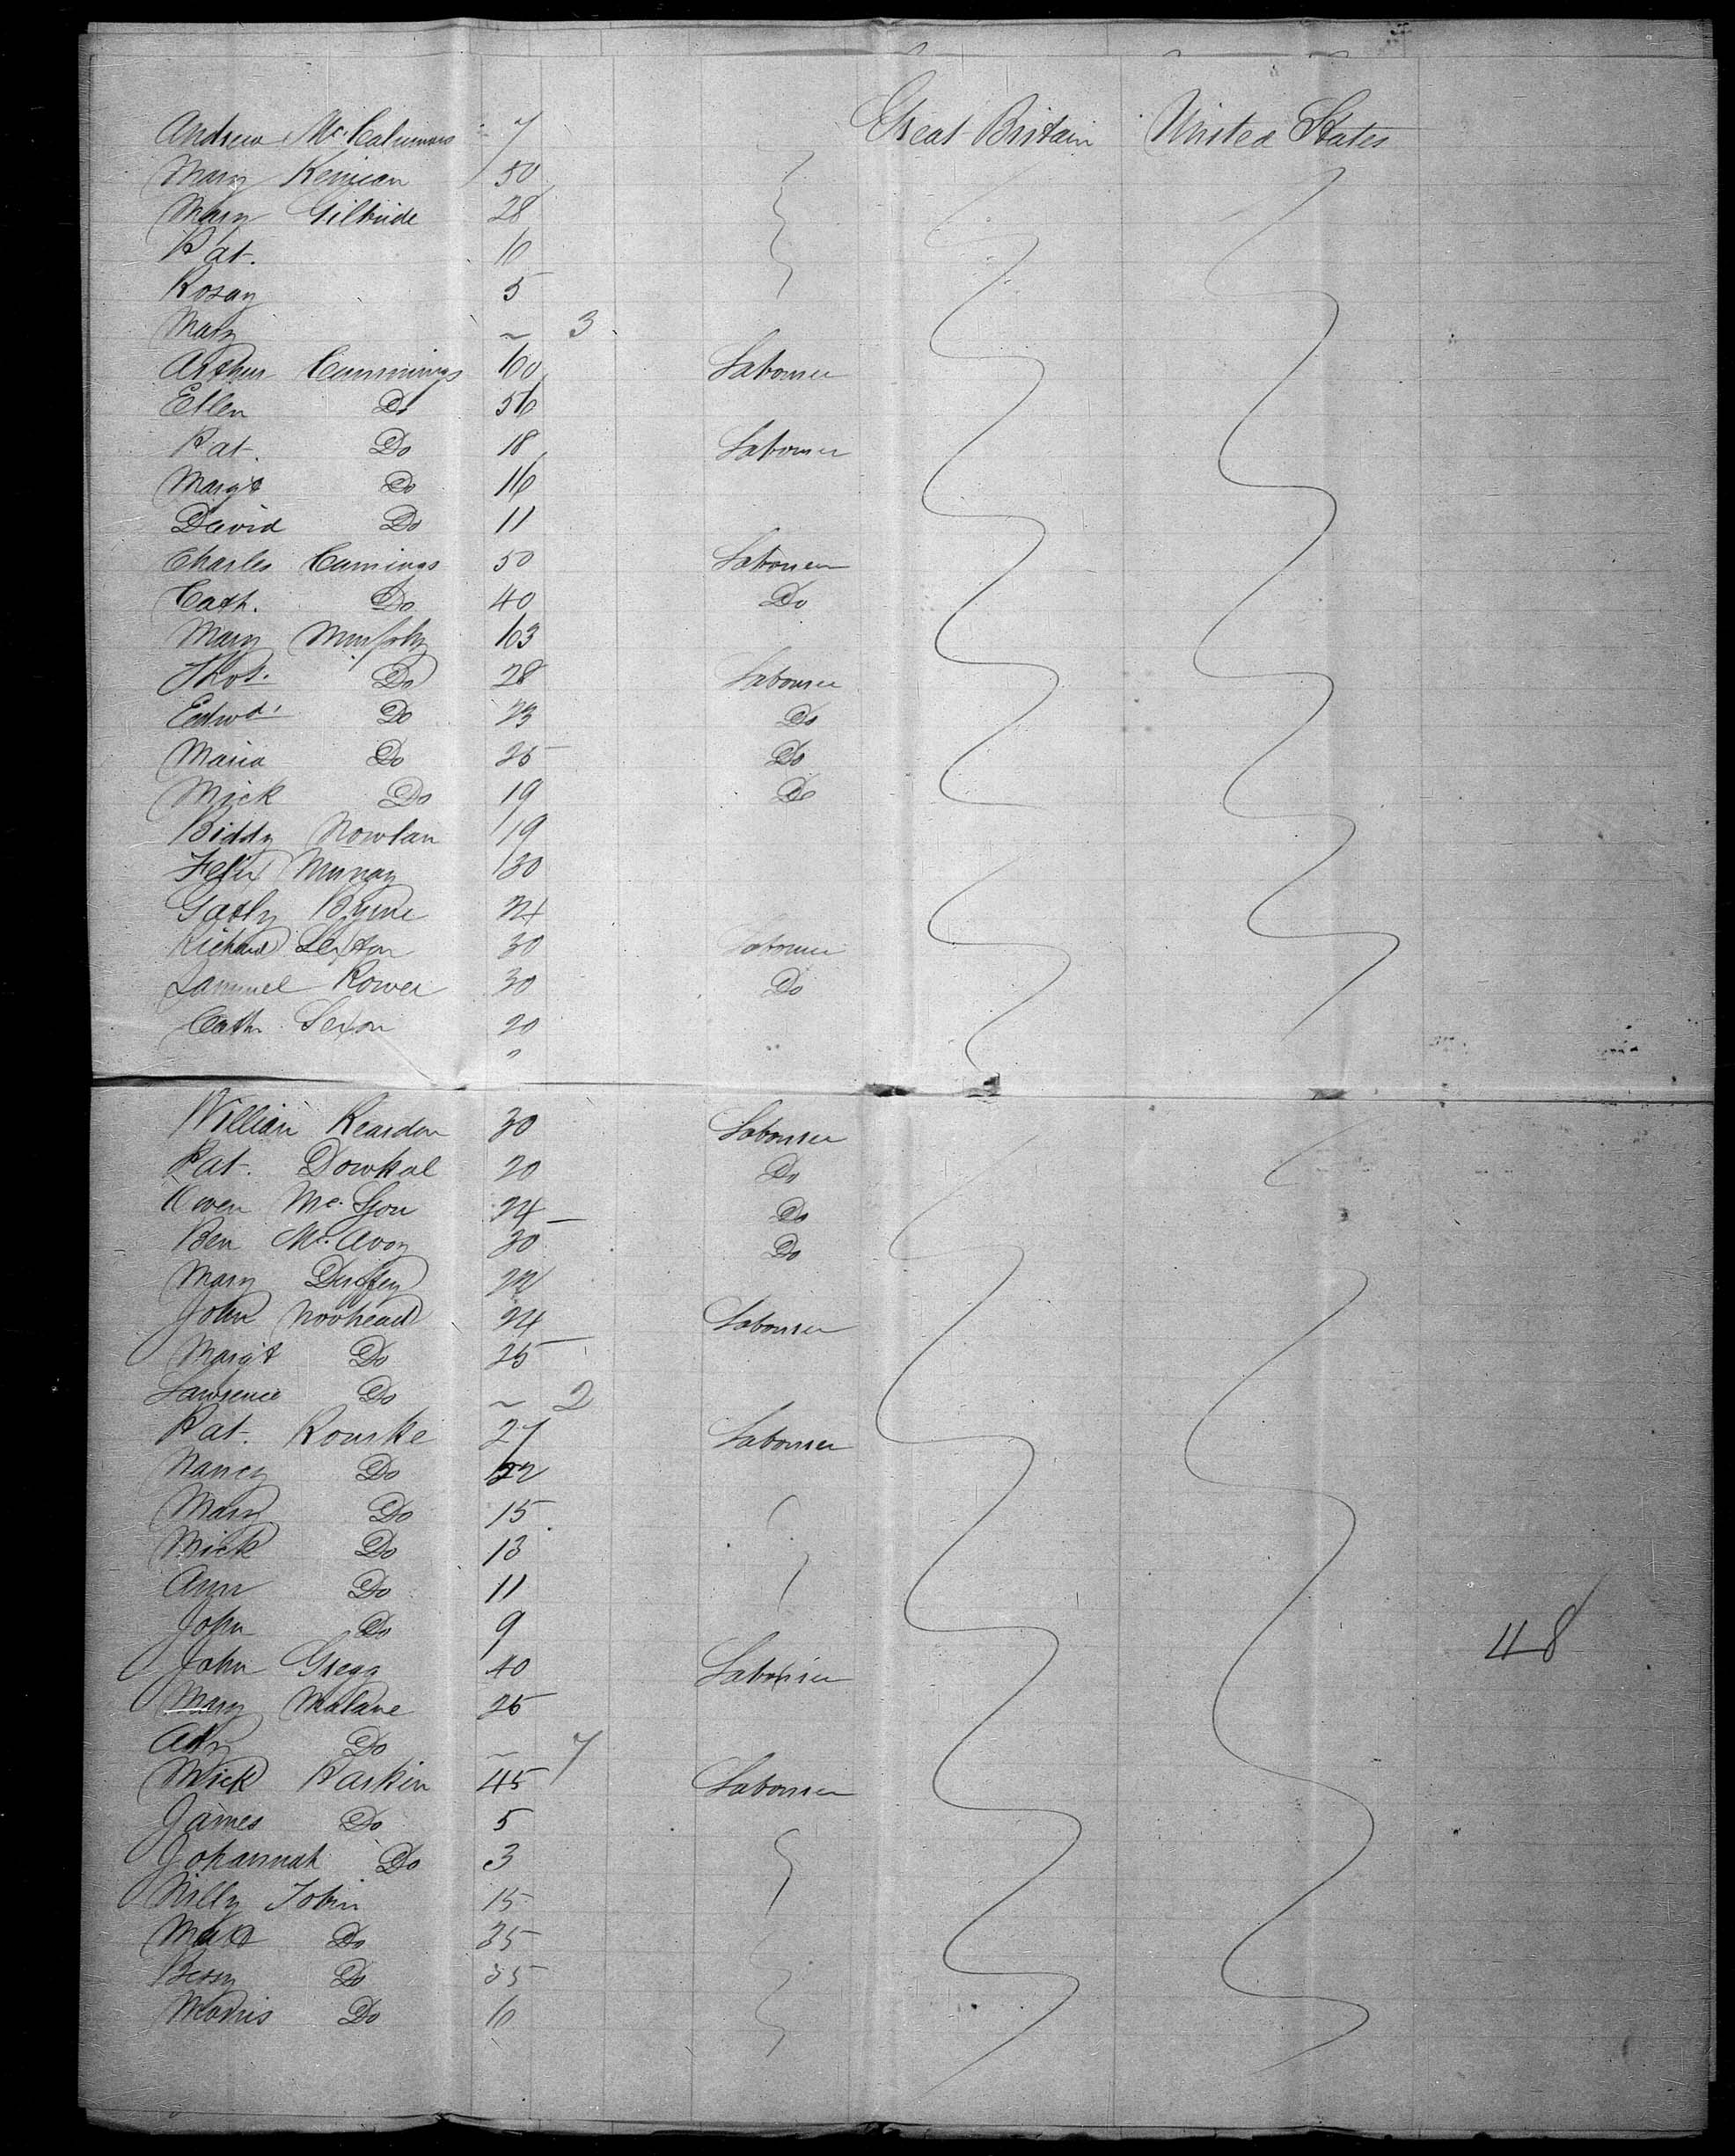 Great Britain United States
Andrew Mc 7
Mary 50
Mary Gilbride 28
Pat. 6
Rosay 5
Mary ~ 3
Arthur Cummings 60 Labourer
Ellen Do 56
Pat. Do 18 Labourer
Margt Do 16
David Do 11
Charles Cumings 50 Labourer
Cath. Do 40 Do
Mary Murphy 63
Thos. Do 28 Labourer
Edwd. Do 23 Do
Maria Do 25 Do
Mick Do 19 Do
Biddy Nowlan 19
Felix Murray 30
Byrne 24
Richard Sexton 30 Labourer
Samuel Power 30 Do
Cath Sexon 20
William Reardon 30 Labourer
Pat. 20 Do
Owen Mc. 24 Do
Ben Mc. Avoy 30 Do
Mary Duffey 22
John 24 Labourer
Margt Do 25
Lawrence Do ~ 2
Pat. Rourke 27 Labourer
Nancy Do
Mary Do 15
Mick Do 13
Ann Do 11
John Do 9
John Gregg 40 Labourer
48
Mary Malane 25
Do ~ 7
Mick Larkin 45 Labourer
James Do 5
Johannah Do 3
Tobin 15
Do 35
Bessy Do 35
Morris Do 6